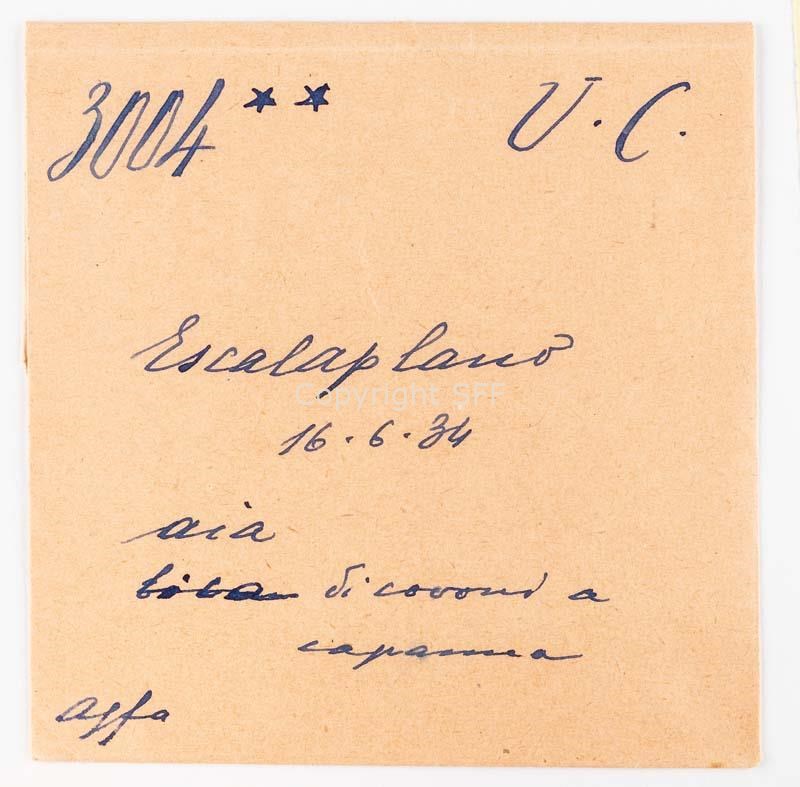 3004 ** U. C.
Escalaplano
Copyright SFF
16.6.34
aia
di covoni a
capanna
agfa